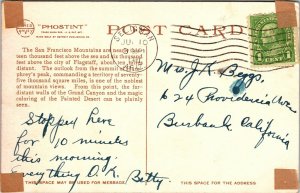 "PHOSTINT"
POST CARD
The San Francisco Mountains are nearly thirteen
thousand feet above the sea and six thousand
feet above the city of Flagstaff, about ten miles
distant. The outlook from the summit of Humphrey's
phrey's peak, commanding a territory of seventy-
five thousand square miles, is one of the noblest
of mountain views. From this point, the far-
distant walls of the Grand Canyon and the magic
coloring of the Painted Desert can be plainly
seen.
1 CENT 1
Mrs. J. K. Beggs,
624 Providencia Ave
Burbank California
Stopped here
for 10 minutes
this morning.
Everything O.K. Betty
THIS SPACE MAY BE USED FOR MESSAGE
THIS SPACE FOR THE ADDRESS